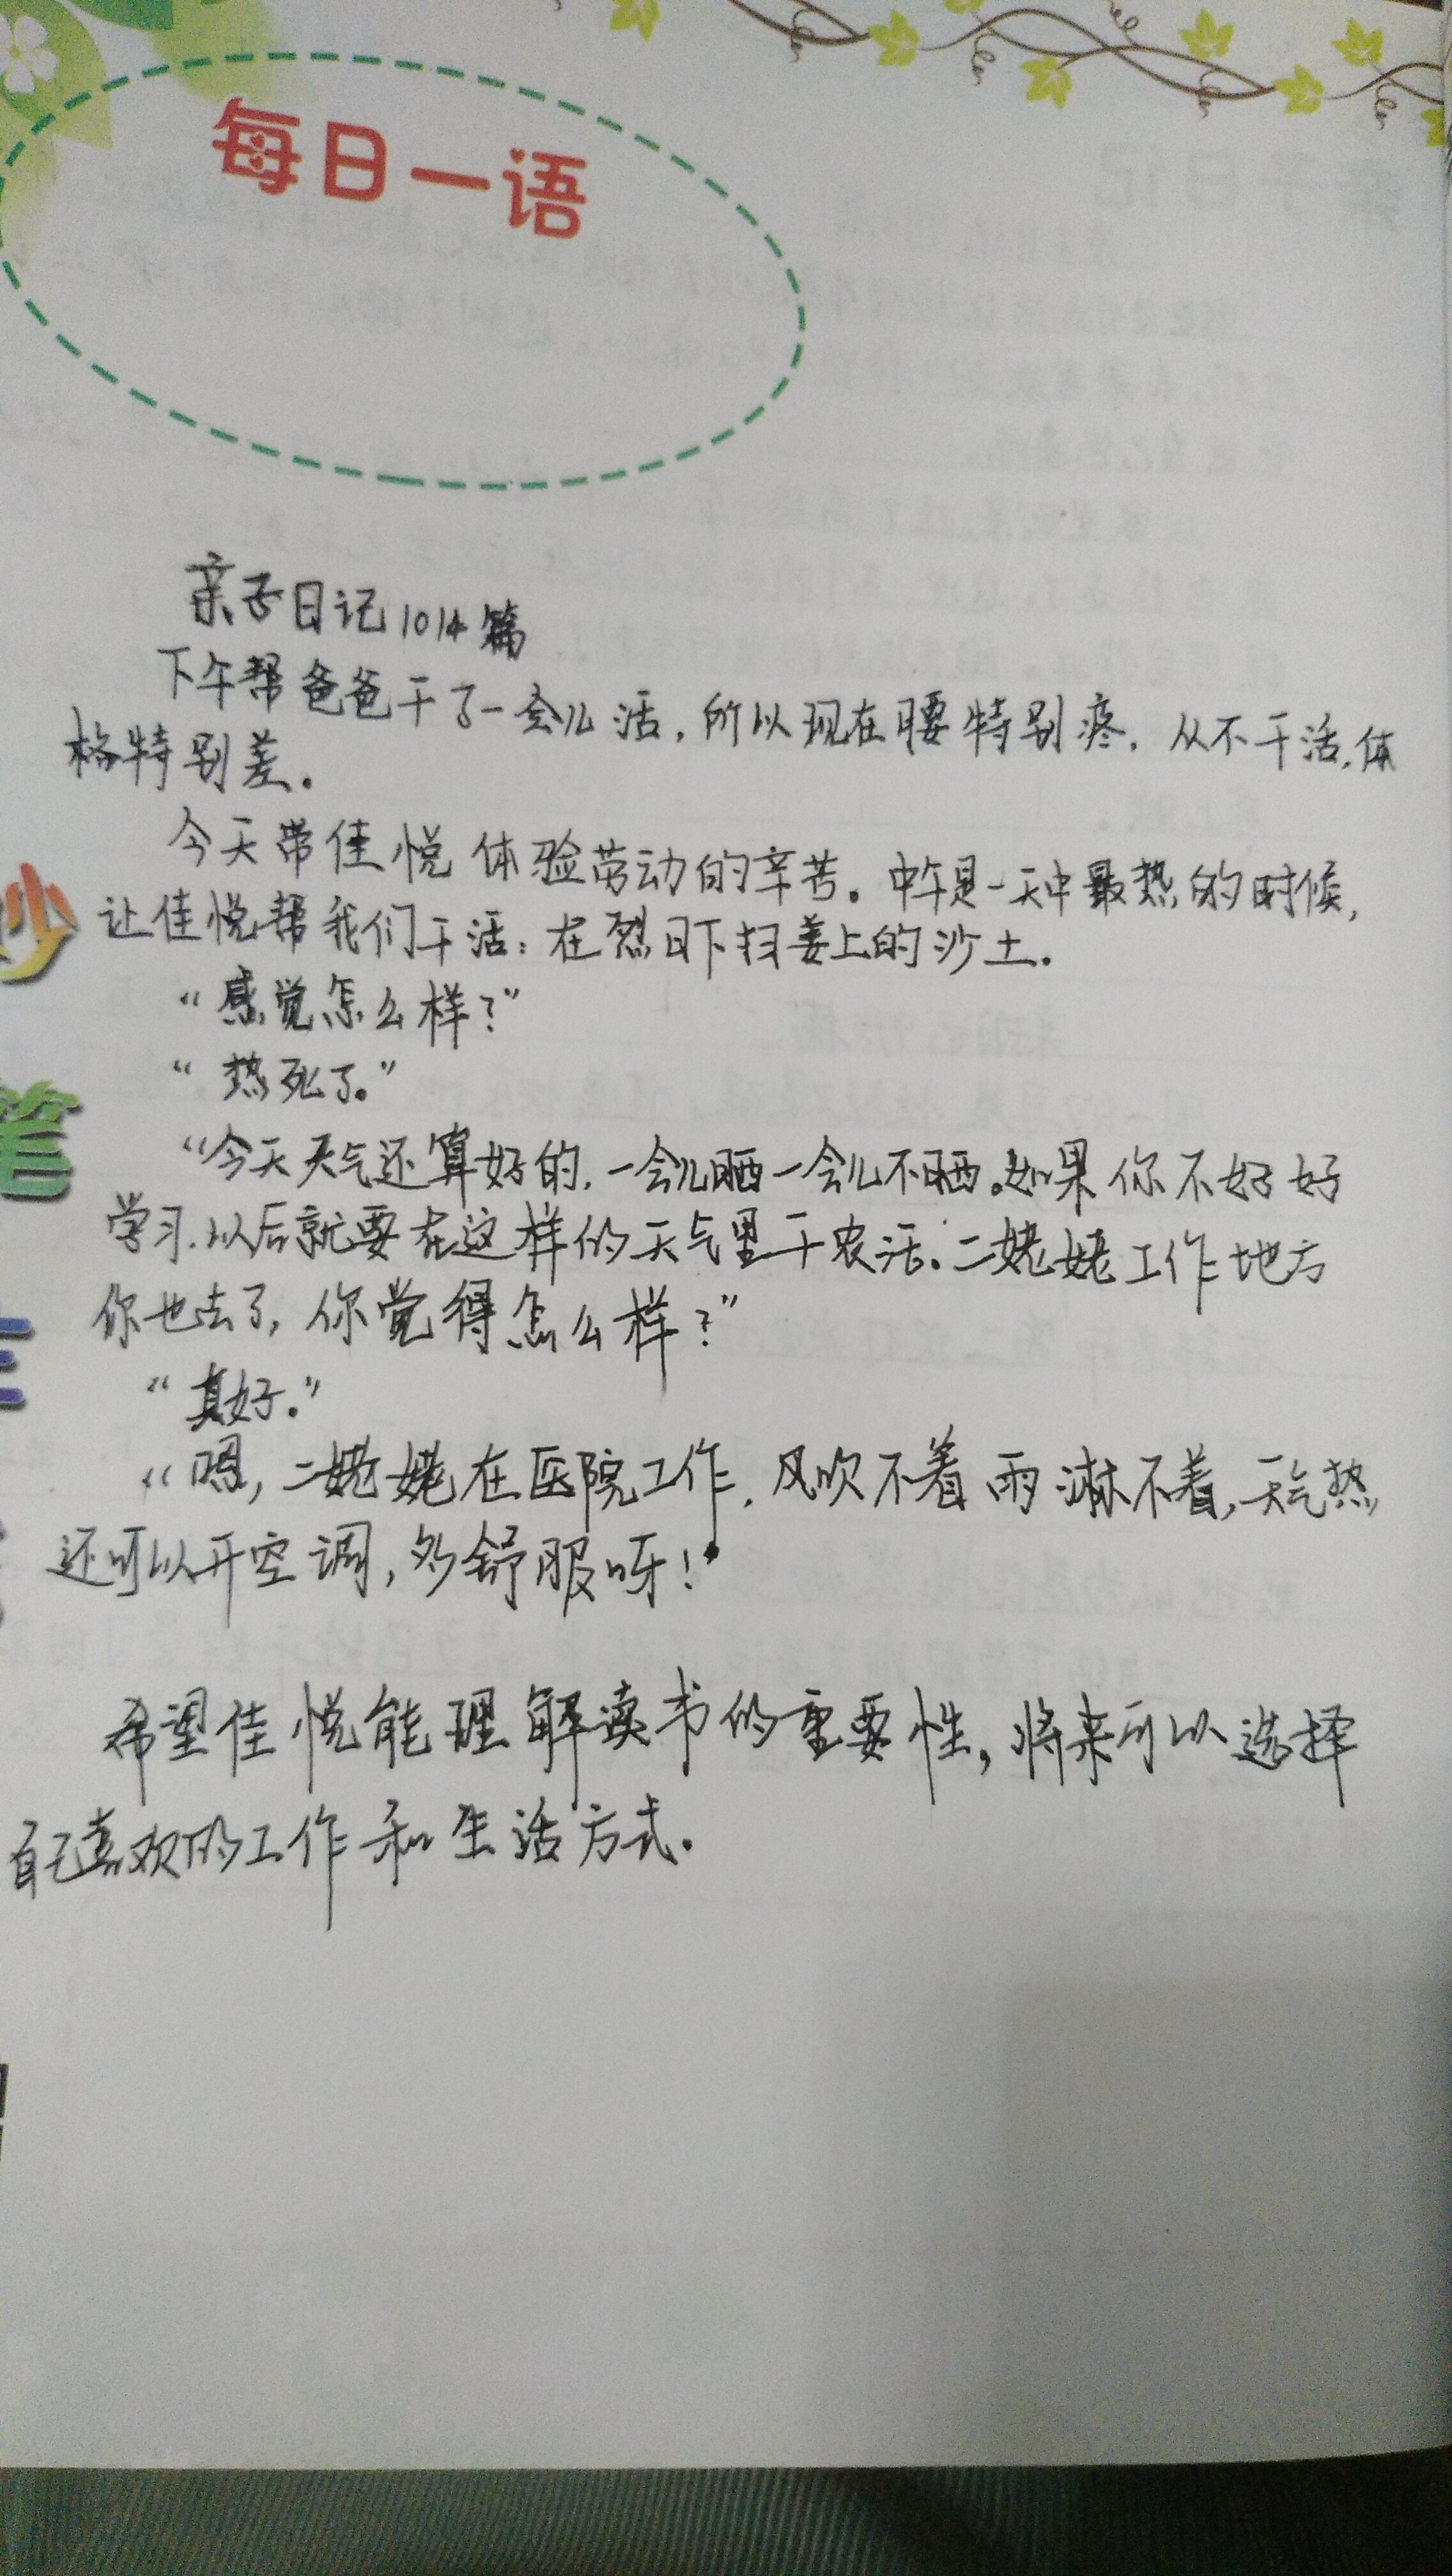 每日一语
亲子日记1014篇
下午帮爸爸干了一会儿活,所以现在腰特别疼。从不干活,体
格特别差。
今天带佳悦体验劳动的辛苦。中午是一天中最热的时候,
让佳悦帮我们干活:在烈日下扫姜上的沙土。
“感觉怎么样?”
“热死了。”
“今天天气还算好的,一会儿晒一会儿不晒。如果你不好好
学习,以后就要在这样的天气里干农活。二姥姥工作地方
你也去了,你觉得怎么样?”
“真好。”
“嗯,二姥姥在医院工作,风吹不着雨淋不着,天气热
还可以开空调,多舒服呀!”
希望佳悦能理解读书的重要性,将来可以选择
自己喜欢的工作和生活方式。
妙
笔